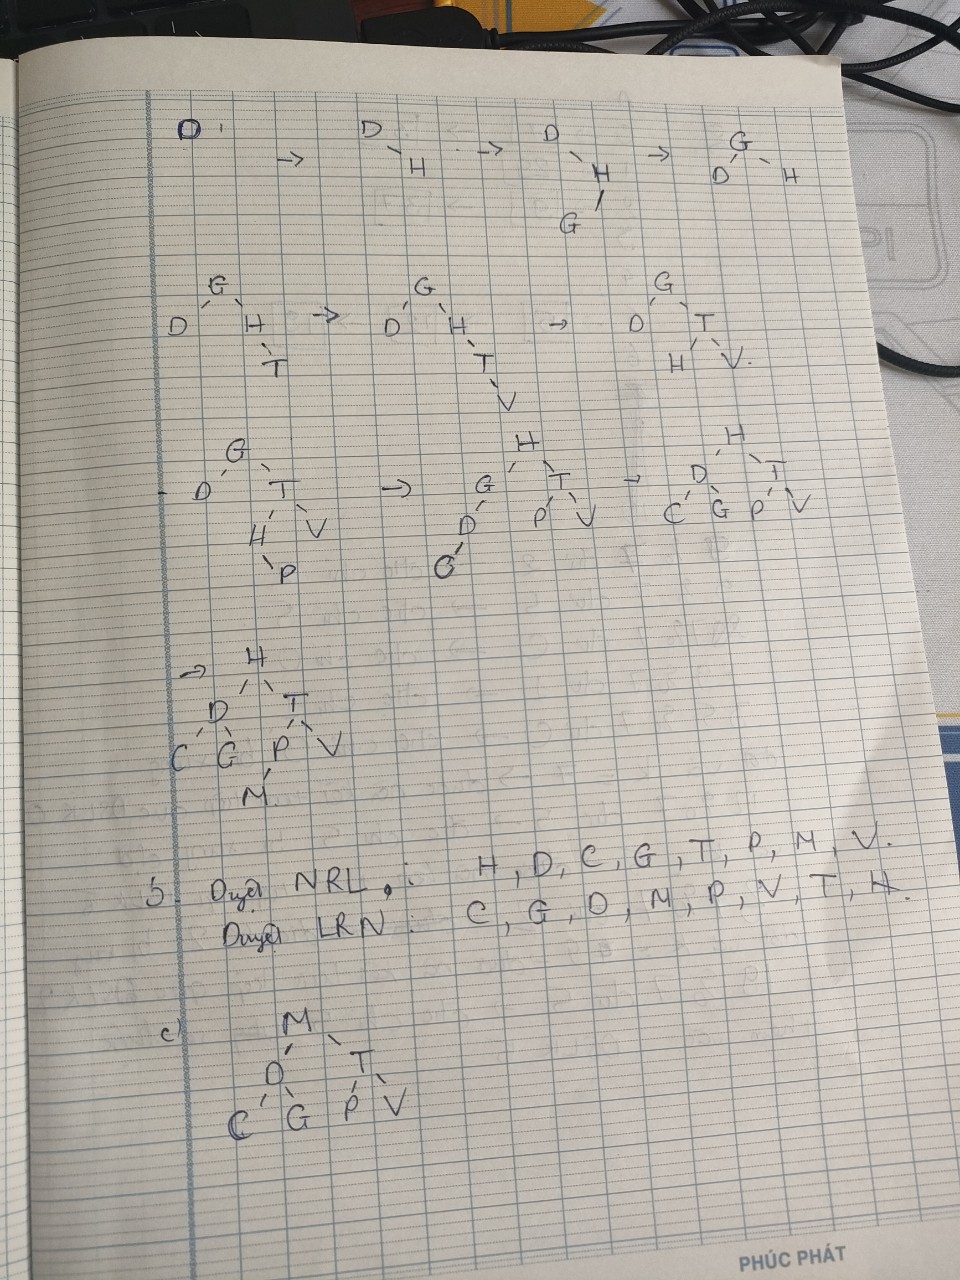 D → D H → D H G → G D H
G D H T → G D H T V → G D T H V.
G D T H V P → H G T D P V C → H D T C G P V
→ H D T C G P V M
b. Duyệt NRL : H, D, C, G, T, P, M, V.
Duyệt LRN : C, G, D, M, P, V, T, H.
c) M
D T
C G P V
PHÚC PHÁT